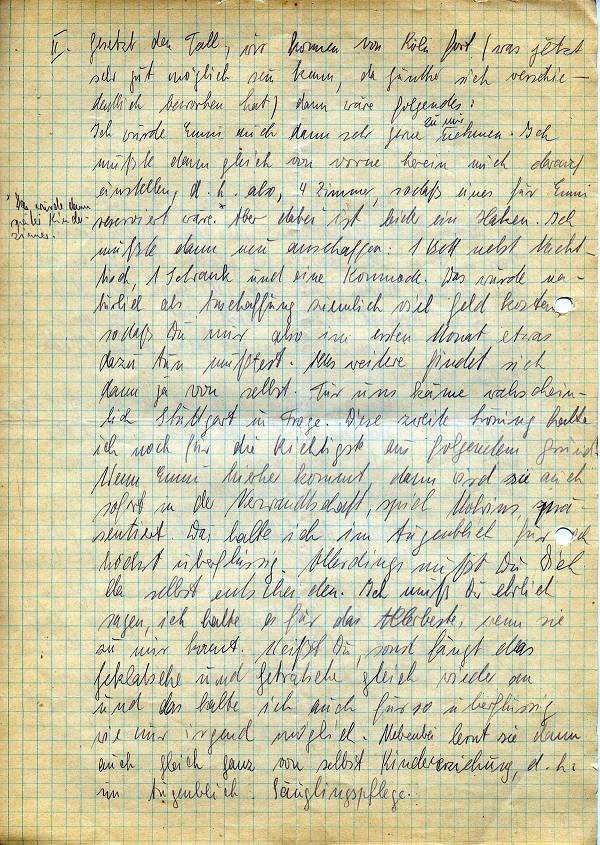 II. Gesetzt den Fall, wir kommen von Köln fort (was jetzt
sehr gut möglich sein kann, da Günther sich verschie-
dentlich beworben hat) dann wäre folgendes:
Ich würde Emmi auch dann sehr gerne zu mir nehmen. Ich
müßte dann gleich von vorne herein mich darauf
einstellen, d. h. also, 4 Zimmer, sodaß eines für Emmi
reserviert wäre.* Aber dabei ist leider ein Haken. Ich
* Das würde dann
später Kinder-
zimmer.
müßte dann neu anschaffen: 1 Bett nebst Nacht-
tisch, 1 Schrank und eine Kommode. Das würde na-
türlich als Anschaffung ziemlich viel Geld kosten,
sodaß Du mir also im ersten Monat etwas
dazu tun müßtest. Alles weitere findet sich
dann ja von selbst. Für uns käme wahrschein-
lich Stuttgart in Frage. Diese zweite Lösung halte
ich noch für die Richtigste aus folgendem Grund.
Wenn Emmi hierher kommt, dann wird sie auch
sofort in der Verwandtschaft, präsentiert
Das halte ich im Augenblick für
höchst überflüssig. Allerdings mußt Du Dich
da selbst entscheiden. Ich muß Dir ehrlich
sagen, ich halte es für das Allerbeste, wenn sie
zu mir kommt. Weißt Du, sonst fängt das
Geklatsche und Getratsche gleich wieder an
und das halte ich auch für so überflüssig
wie nur irgend möglich. Nebenbei lernt sie dann
auch gleich ganz von selbst Kindererziehung, d. h.
im Augenblick Säuglingspflege.